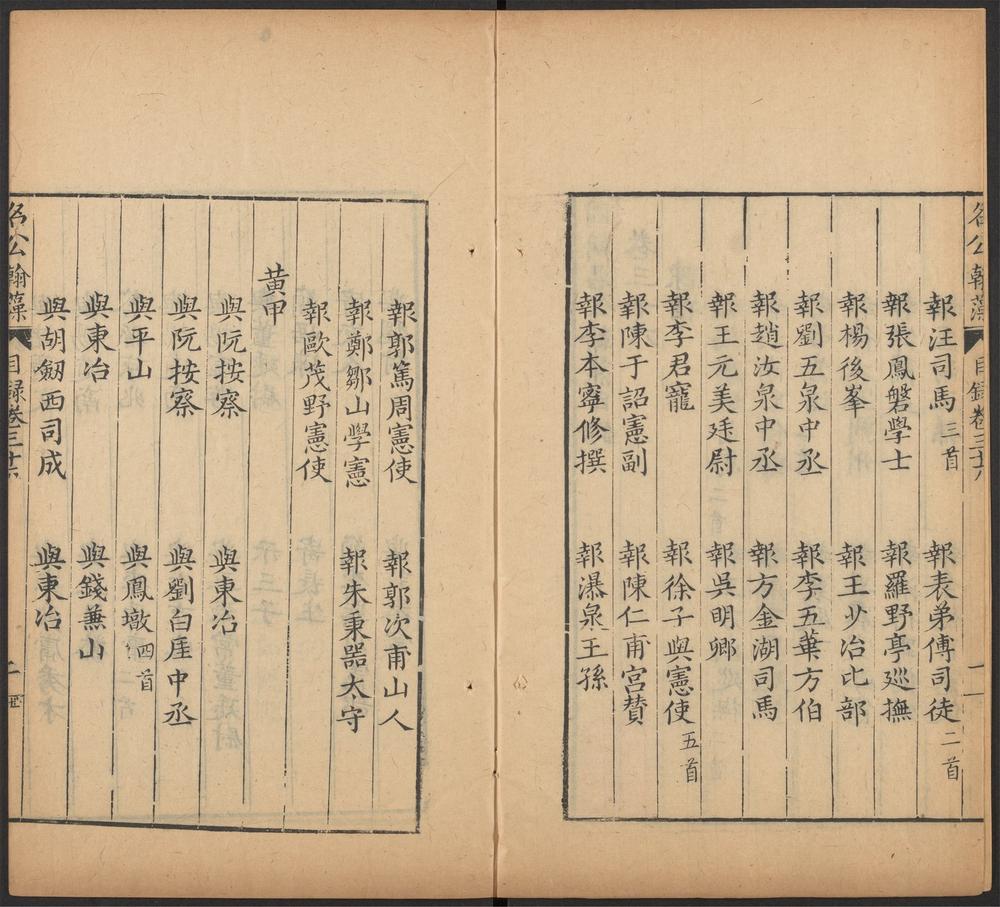 名公翰藻 目錄卷三十六 二
報汪司馬三首 報表弟傅司徒二首
報張鳳磐學士 報羅野亭巡撫
報楊後峯 報王少冶比部
報劉五泉中丞 報李五華方伯
報趙汝泉中丞 報方金湖司馬
報王元美廷尉 報吳明卿
報李君寵 報徐子與憲使五首
報陳于詔憲副 報陳仁甫宮贊
報李本寧修撰 報瀑泉王孫
報郭篤周憲使 報郭次甫山人
報鄭鄒山學憲 報朱秉器太守
報歐茂野憲使
黃甲
與阮按察 與東冶
與阮按察 與劉白厓中丞
與平山 與鳳墩四首
與東冶 與錢兼山
與胡劒西司成 與東冶
名公翰藻 目錄卷三十六